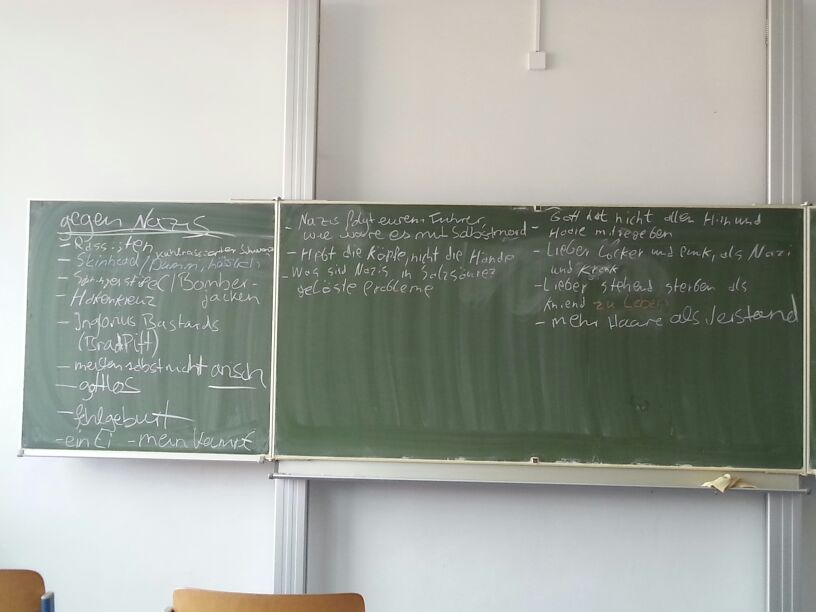 gegen Nazis
- Rassisten
- Skinhead/Dumm, hässlich kahlrasierter Schwanz
- Springerstiefel/Bomber-
jacken
- Hakenkreuz
- Inglorius Bastards
(Brad Pitt)
- meisten selbst nicht arisch
- gottlos
- fehlgeburt
- ein Ei - mein Kampf
- Nazis folgt eurem Führer,
wie wäre es mit Selbstmord
- Hebt die Köpfe, nicht die Hände
- Was sind Nazis in Salzsäure?
gelöste Probleme
- Gott hat nicht allen Hirn und
Haare mitgegeben
- Lieber locker und Punk, als Nazi
und Krank
- Lieber stehend sterben als
kniend zu Leben
- mehr Haare als Verstand